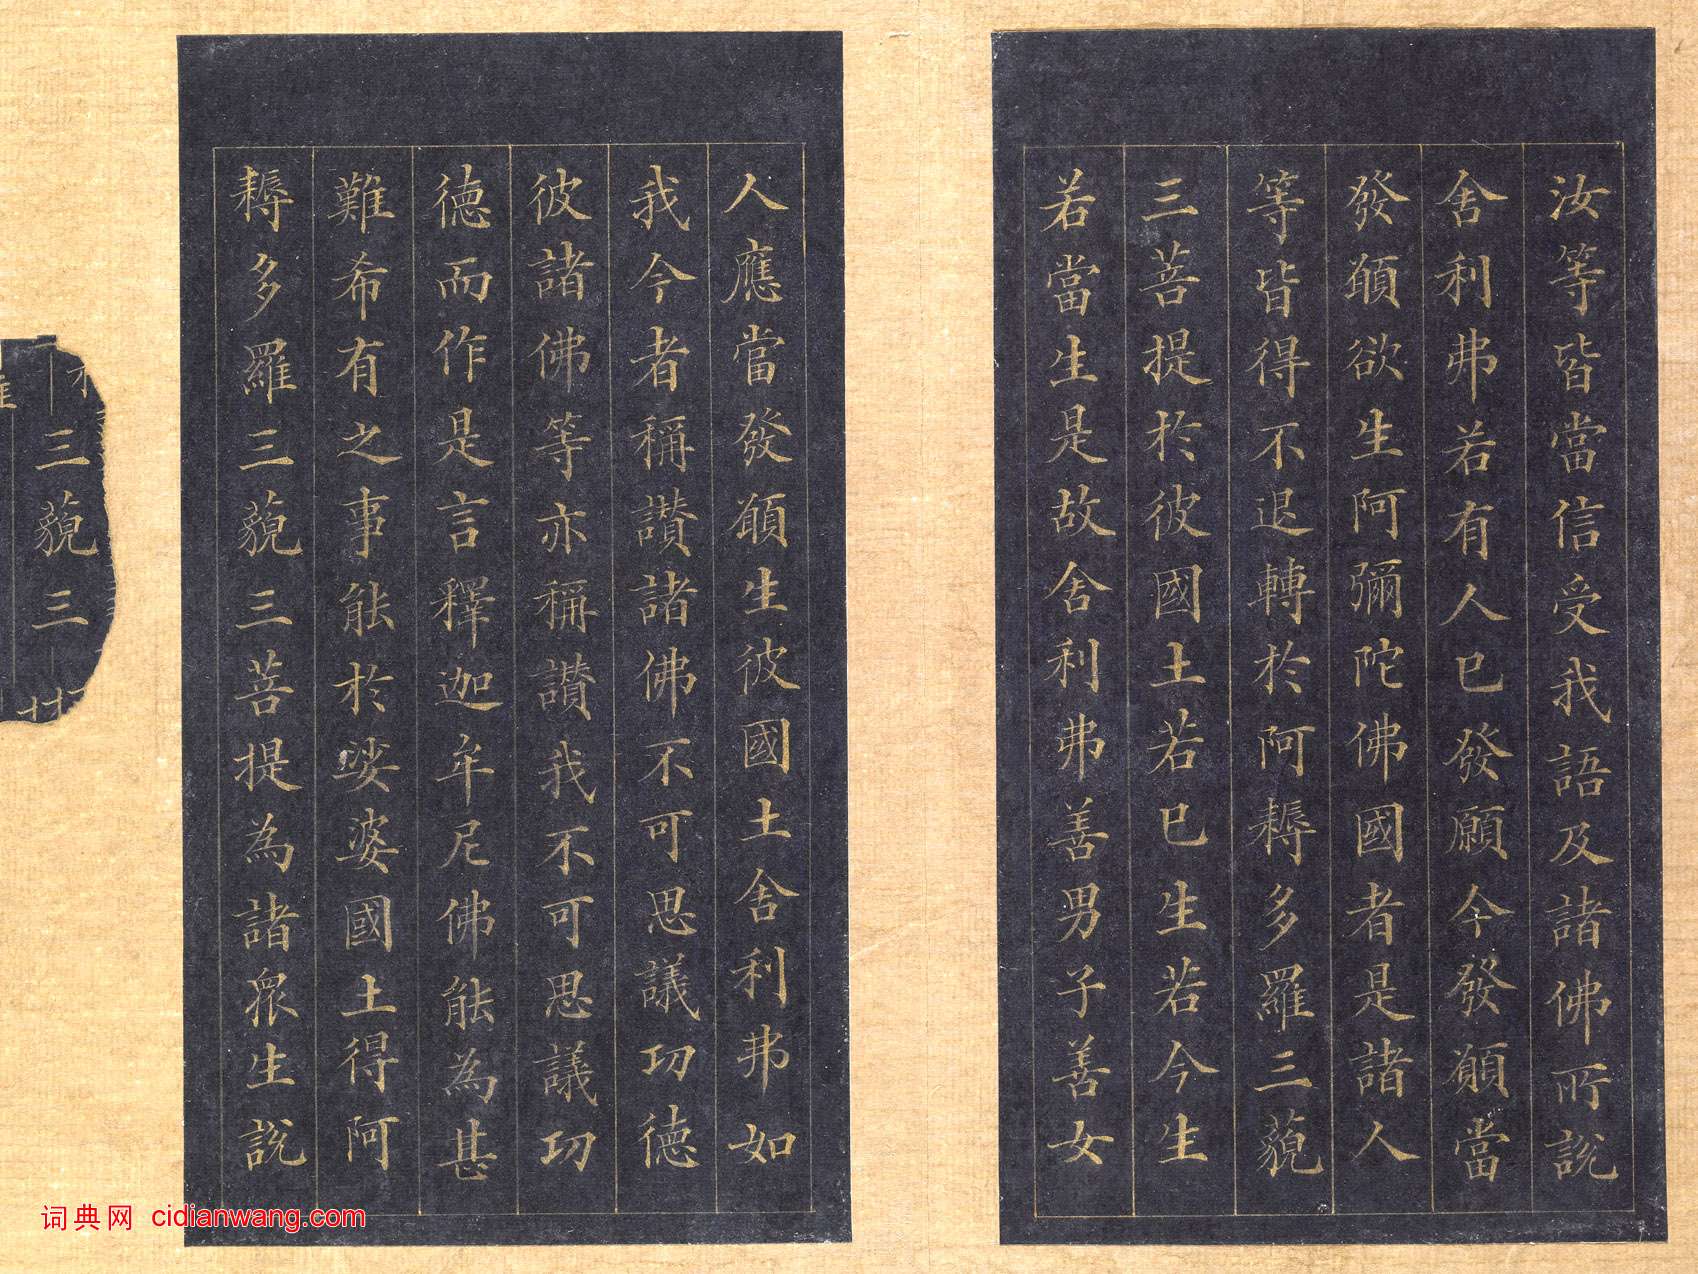 汝等皆當信受我語及諸佛所說
舍利弗若有人已發願今發願當
發願欲生阿彌陀佛國者是諸人
等皆得不退轉於阿耨多羅三藐
三菩提於彼國土若已生若今生
若當生是故舍利弗善男子善女
人應當發願生彼國土舍利弗如
我今者稱讚諸佛不可思議功德
彼諸佛等亦稱讚我不可思議功
德而作是言釋迦牟尼佛能為甚
難希有之事能於娑婆國土得阿
耨多羅三藐三菩提為諸眾生說
三藐三
词典网 cidianwang.com